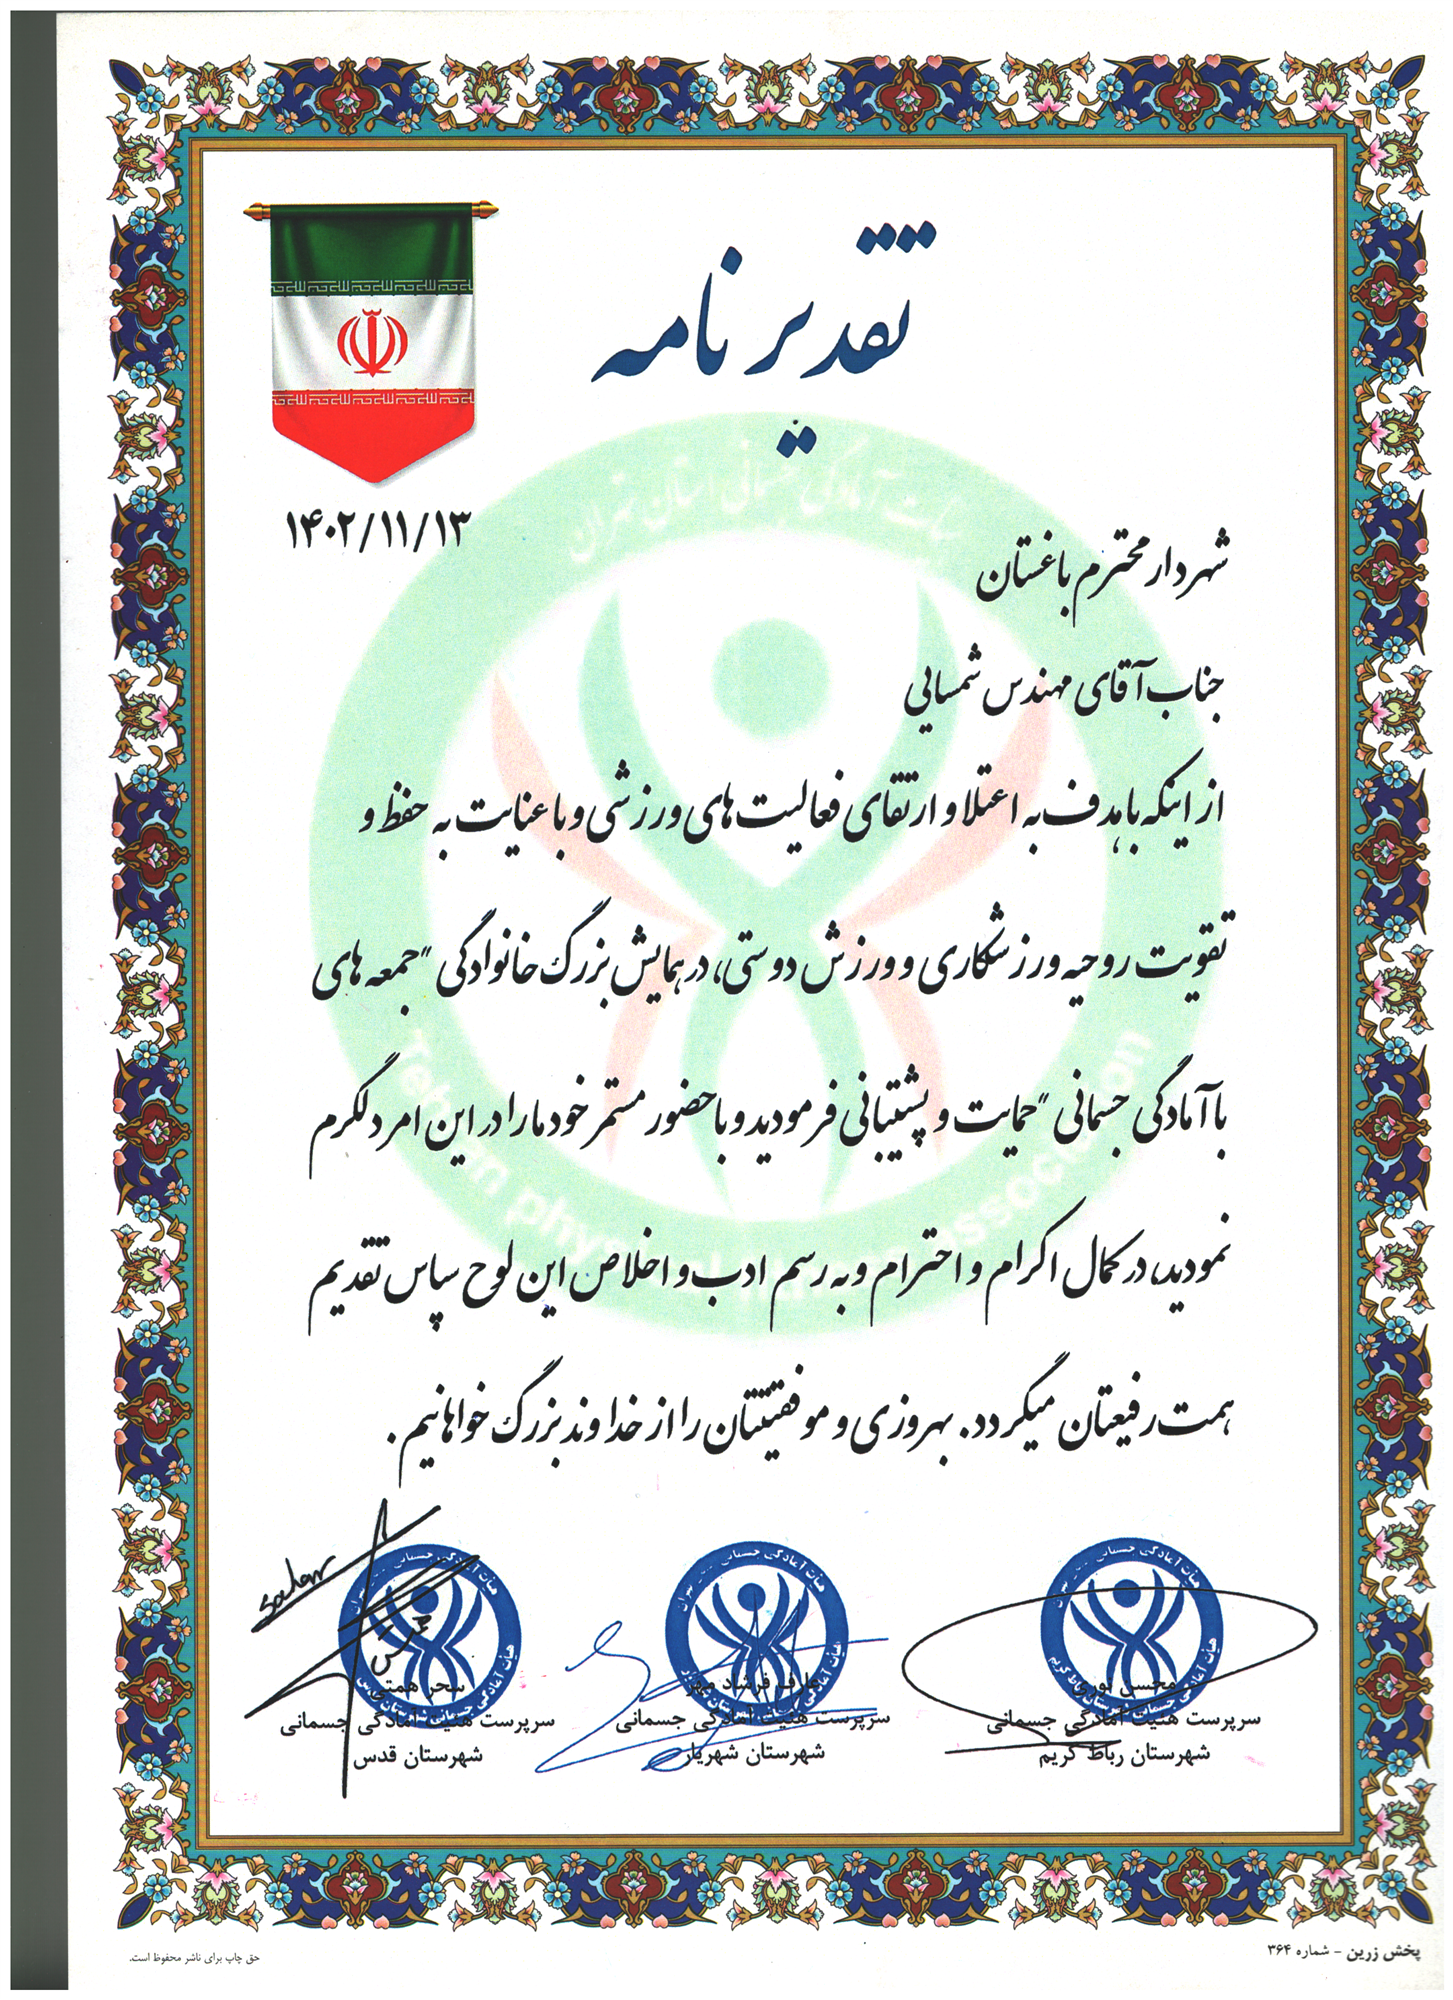 تقدیر نامه
۱۴۰۲/۱۱/۱۳
هیأت آمادگی جسمانی استان تهران
شهردار محترم باغستان
جناب آقای مهندس شمسایی
از اینکه با هدف به اعتلا و ارتقای فعالیت های ورزشی و با عنایت به حفظ و
تقویت روحیه ورزشکاری و ورزش دوستی، در همایش بزرگ خانوادگی "جمعه های
با آمادگی جسمانی" حمایت و پشتیبانی فرمودید و با حضور مستمر خود ما را در این امر دلگرم
نمودید، در کمال اکرام و احترام و به رسم ادب و اخلاص این لوح سپاس تقدیم
همت رفیعتان میگردد. بهروزی و موفقیتتان را از خداوند بزرگ خواهانیم.
محسن نوری
سرپرست هئیت آمادگی جسمانی
شهرستان رباط کریم
عارف فرشاد مهر
سرپرست هئیت آمادگی جسمانی
شهرستان شهریار
سحر همتی
سرپرست هئیت آمادگی جسمانی
شهرستان قدس
پخش زرین - شماره ۳۶۴
حق چاپ برای ناشر محفوظ است.